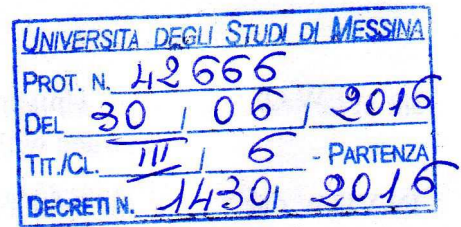 UNIVERSITA DEGLI STUDI DI MESSINA
PROT. N. 42666
DEL 30 / 06 / 2016
TIT./CL. III / 6 - PARTENZA
DECRETI N. 1430 / 2016